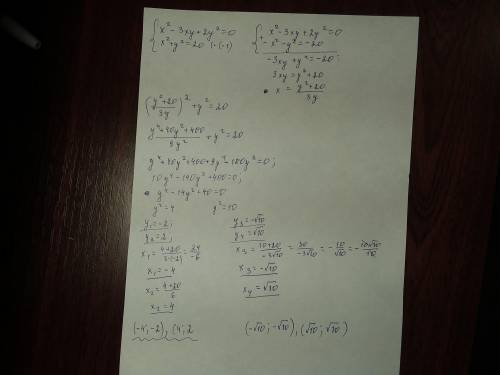 { x² - 3xy + 2y² = 0
x² + y² = 20 |·(-1)
{ x² - 3xy + 2y² = 0
+ -x² - y² = -20
-3xy + y² = -20;
3xy = y² + 20
• x = (y² + 20)/3y
((y² + 20)/3y)² + y² = 20
(y⁴ + 40y² + 400)/9y² + y² = 20
y⁴ + 40y² + 400 + 9y⁴ - 180y² = 0;
10y⁴ - 140y² + 400 = 0;
• y⁴ - 14y² + 40 = 0
y² = 4
y² = 10
y₁ = -2;
y₂ = 2;
x₁ = (4+20)/(3·(-2)) = 24/-6
x₁ = -4
x₂ = (4+20)/6
x₂ = 4
y₃ = -√10
y₄ = √10
x₃ = (10+20)/(-3√10) = 30/(-3√10) = -10/√10 = -10√10/10
x₃ = -√10
x₄ = √10
(-4; -2), (4; 2
(-√10; -√10), (√10; √10)